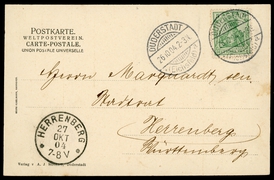 POSTKARTE.
WELTPOSTVEREIN.
CARTE-POSTALE.
UNION POSTALE UNIVERSELLE
DUDERSTADT
26.10.04.2-3N.
DUDERSTADT
Herrn Marquardt von
Stadtrat
Herrenberg
Württemberg
HERRENBERG
27
OKT
04
7-8 V
Verlag v. A. J.